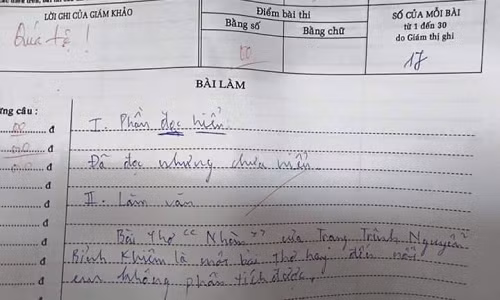 LỜI GHI CỦA GIÁM KHẢO
Quá tệ !
Điểm bài thi
Bằng số
Bằng chữ
00
SỐ CỦA MỖI BÀI
từ 1 đến 30
do Giám thị ghi
17
BÀI LÀM
ừng câu :
00 đ
0,0 đ
0,0 đ
đ
đ
đ
đ
đ
đ
I. Phần đọc hiểu:
Đã đọc nhưng chưa hiểu
II. Làm văn
Bài thơ "Nhàn" của Trạng Trình Nguyễn
Bỉnh Khiêm là một bài thơ hay đến nỗi
em không phân tích được.